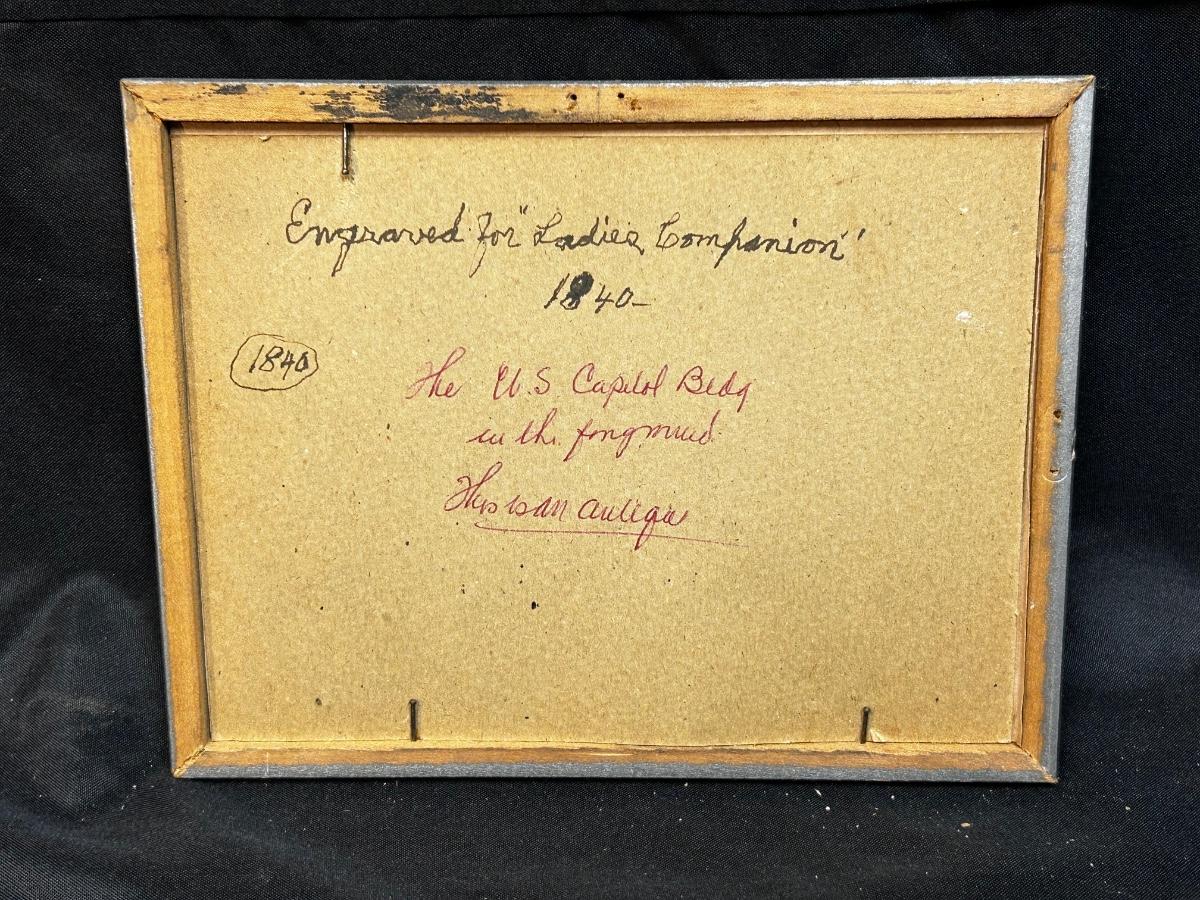 Engraved for "Ladies Companion"
1840-
1840
The U.S Capitol Bldg
in the
This is an antique